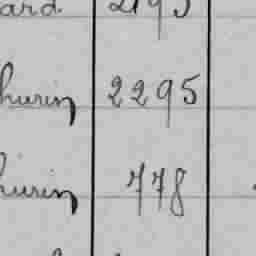 ard
hurin 2295
hurin 778